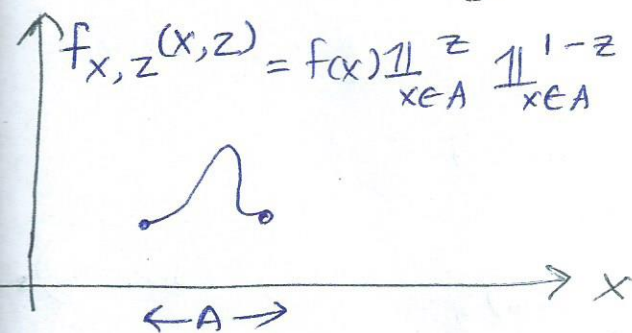 f_{X,Z}(x,z) = f(x) 𝟙_{x∈A}^{z} 𝟙_{x∈A}^{1-z}
X
←A→